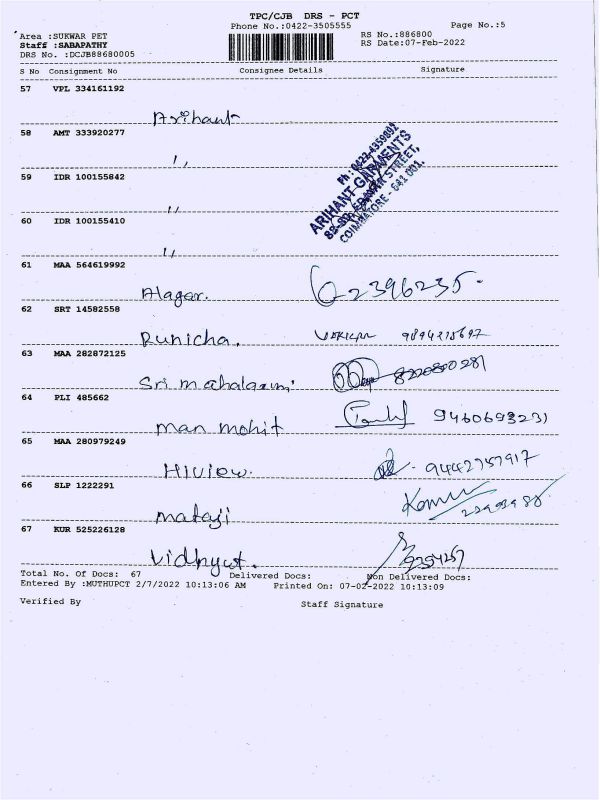 TPC/CJB DRS - PCT
Phone No.:0422-3505555 Page No.:5
Area :SUKWAR PET RS No.:886800
Staff :SABAPATHY RS Date:07-Feb-2022
DRS No. :DCJB88680005
S No Consignment No Consignee Details Signature
57 VPL 334161192
Arihant
58 AMT 333920277
Ph : 0422-4359802
ARIHANT GARMENTS
STREET,
COIMBATORE - 641 001.
,,
59 IDR 100155842
,,
60 IDR 100155410
,,
61 MAA 564619992
Alagar. 2396235-
62 SRT 14582558
Runicha.
63 MAA 282872125
Sri mahalaxmi
64 PLI 485662
man mohit 9460693231
65 MAA 280979249
Hiview.
66 SLP 1222291
mataji
67 KUR 525226128
Vidhyut.
Total No. Of Docs: 67 Delivered Docs: Non Delivered Docs:
Entered By :MUTHUPCT 2/7/2022 10:13:06 AM Printed On: 07-02-2022 10:13:09
Verified By Staff Signature